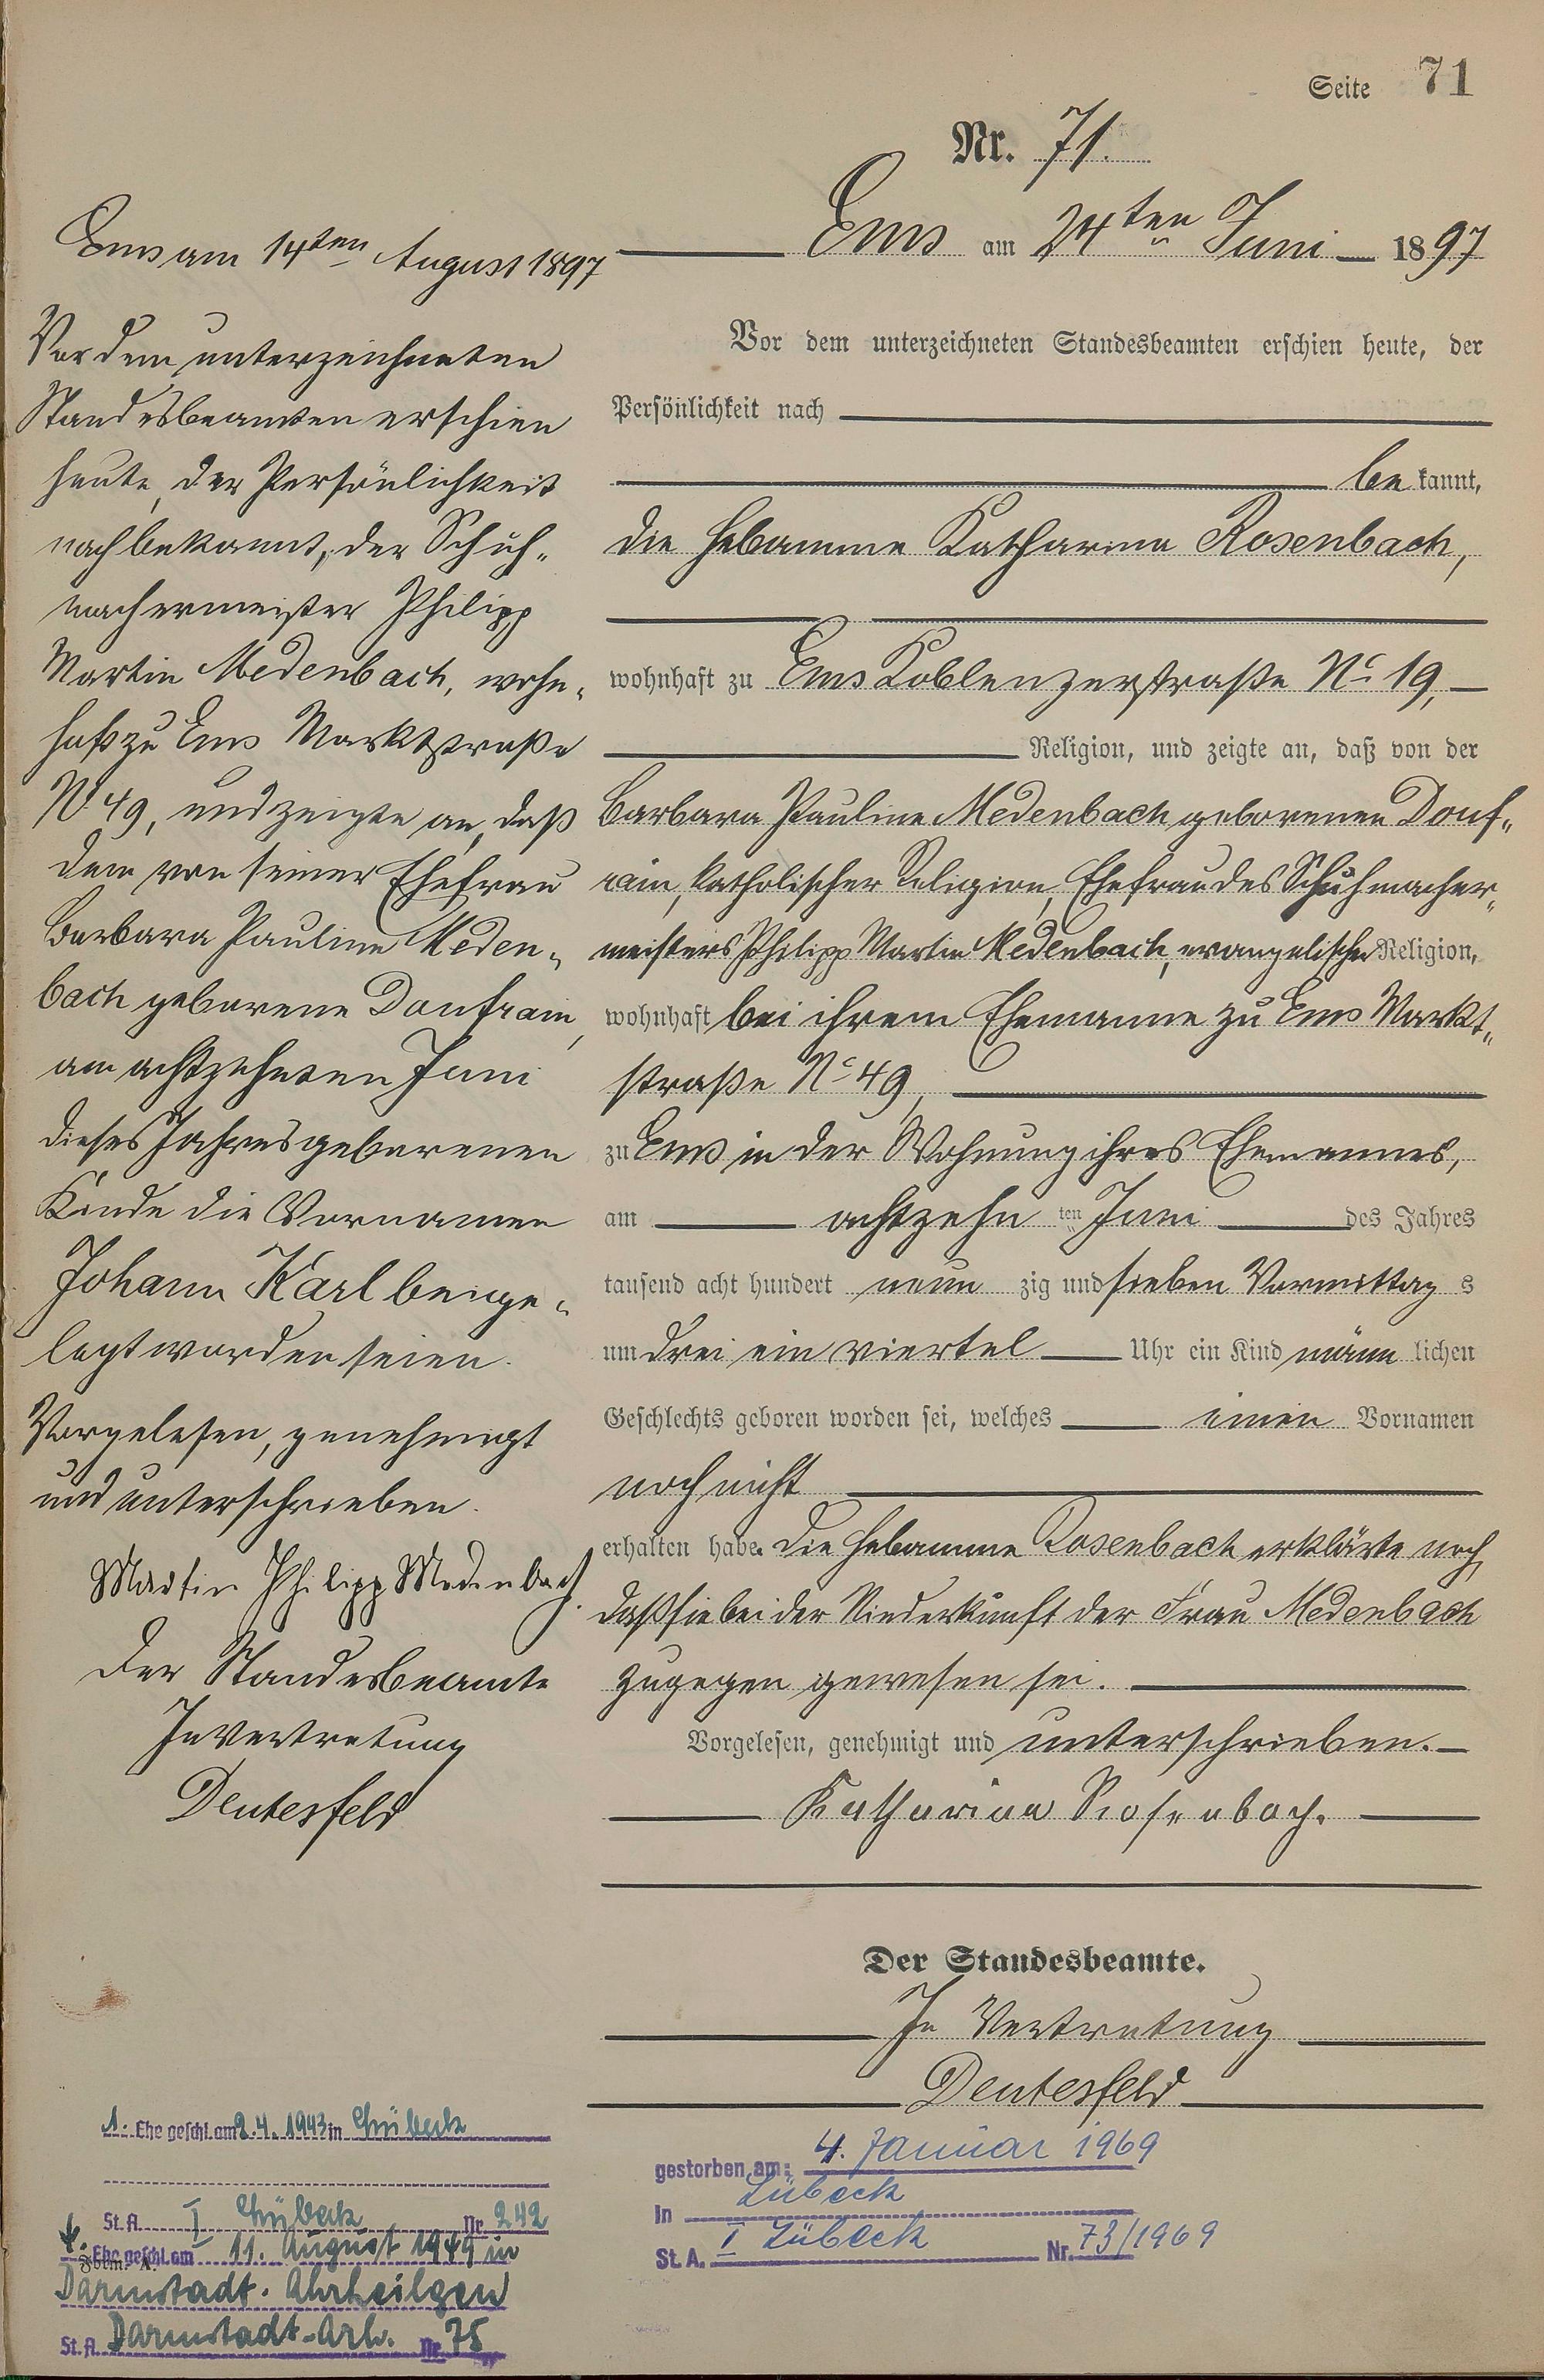 Seite 71
Nr. 71.
Ems am 24ten Juni 1897
Vor dem unterzeichneten Standesbeamten erschien heute, der
Persönlichkeit nach
be kannt,
die Hebamme Katharina Rosenbach,
wohnhaft zu Ems Koblenzerstraße No 19,
Religion, und zeigte an, daß von der
Barbara Pauline Medenbach geborenen Donf„
rain, katholischer Religion, Ehefrau des Schuhmacher„
meisters Philipp Martin Medenbach, evangelischer Religion,
wohnhaft bei ihrem Ehemanne zu Ems Markt„
straße No 49,
zu Ems in der Wohnung ihres Ehemannes,
am achtzehn ten Juni des Jahres
tausend acht hundert neun zig und sieben Vormittag s
um drei ein viertel Uhr ein Kind männ lichen
Geschlechts geboren worden sei, welches einen Vornamen
noch nicht
erhalten habe. Die Hebamme Rosenbach erklärte noch,
daß sie bei der Niederkunft der Frau Medenbach
zugegen gewesen sei.
Vorgelesen, genehmigt und unterschrieben.
Katharina Rosenbach.
Der Standesbeamte.
In Vertretung
Deutesfeld
Ems am 14ten August 1897
Vor dem unterzeichneten
Standesbeamten erschien
heute, der Persönlichkeit
nach bekannt, der Schuh„
machermeister Philipp
Martin Medenbach, wohn„
haft zu Ems Marktstraße
No 49, und zeigte an, daß
dem von seiner Ehefrau
Barbara Pauline Meden„
bach geborene Donfrain,
am achtzehnten Juni
dieses Jahres geborenen
Kinde die Vornamen
Johann Karl beige„
legt worden seien.
Vorgelesen, genehmigt
und unterschrieben.
Martin Philipp Medenbach.
Der Standesbeamte
In Vertretung
Deutesfeld
1. Ehe geschl. am 2.4.1943 in Lübeck
St.A. I Lübeck Nr. 242
Ehe geschl. am 11. August 1949 in
Form. A.
Darmstadt-Arheilgen
St.A. Darmstadt-Arh. Nr. 75
gestorben am: 4. Januar 1969
In Lübeck
St. A. I Lübeck Nr. 73/1969